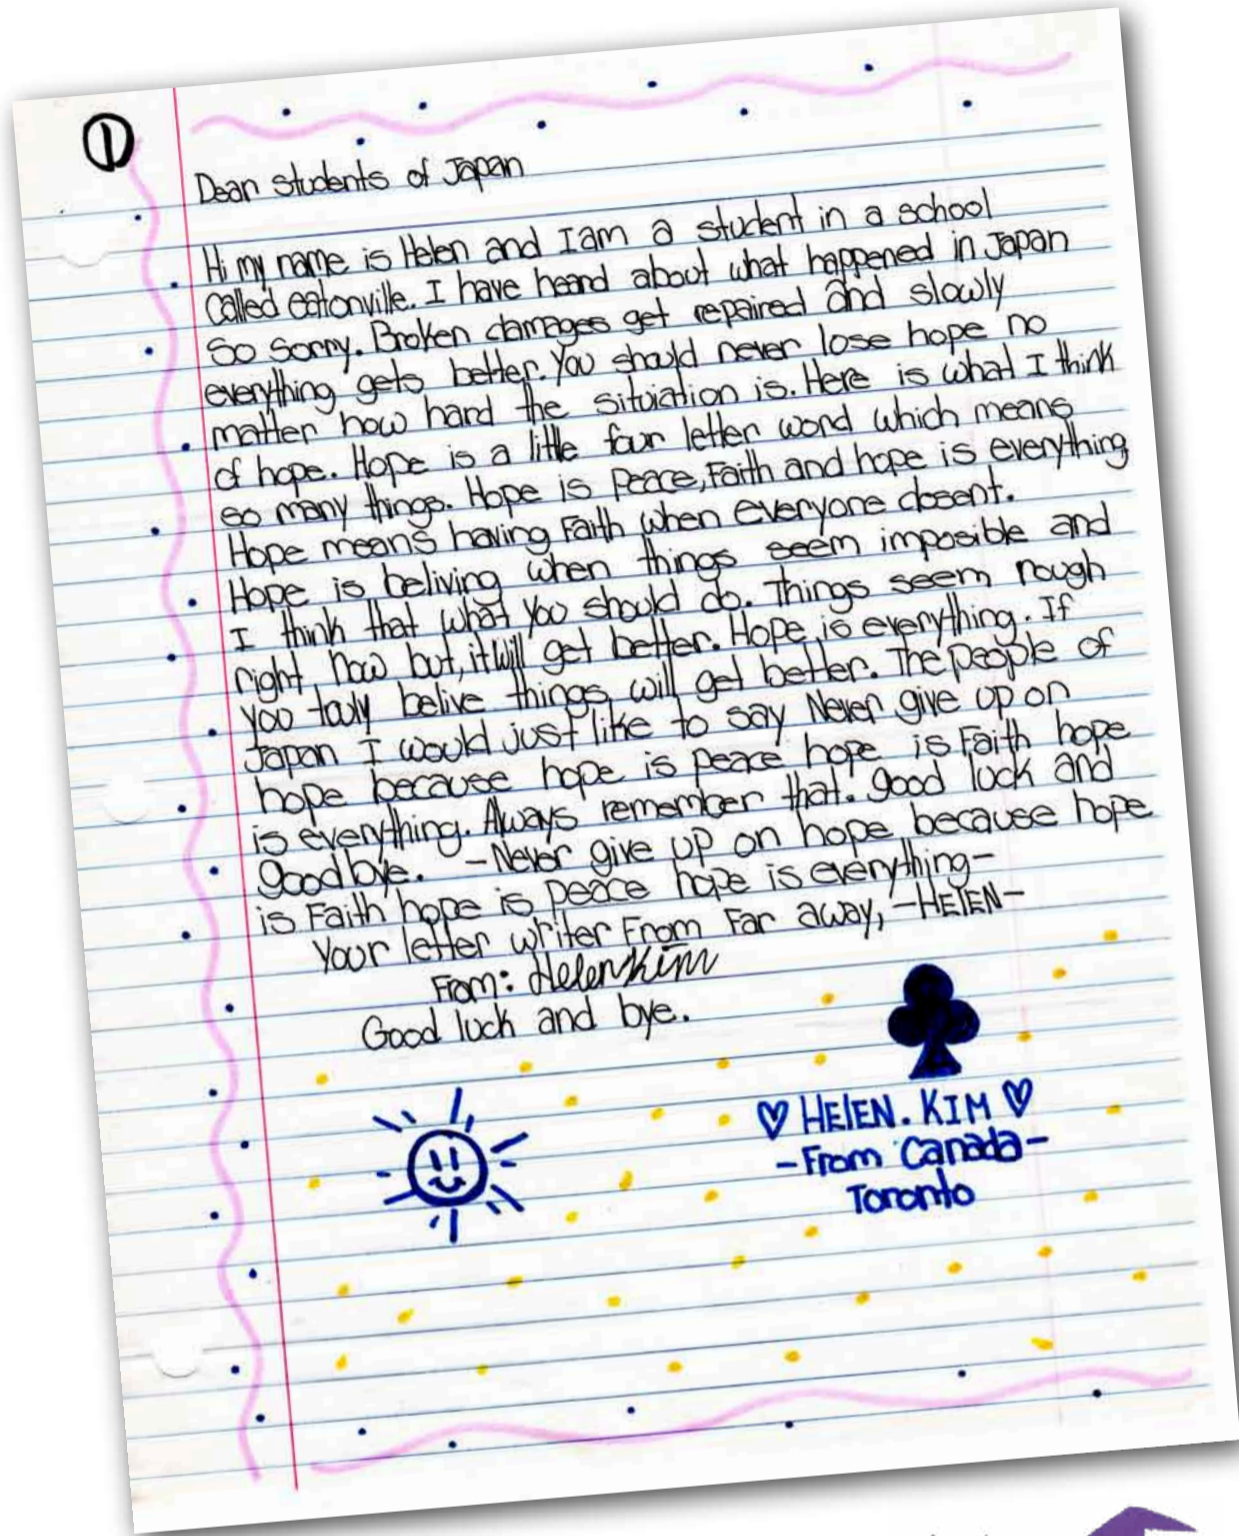 ①
Dear students of Japan
Hi my name is Helen and I am a student in a school
called eatonville. I have heard about what happened in Japan
so sorry. Broken damages get repaired and slowly
everything gets better. You should never lose hope no
matter how hard the situiation is. Here is what I think
of hope. Hope is a little four letter word which means
so many things. Hope is Peace, Faith and hope is everything
Hope means having Faith when everyone dosent.
Hope is beliving when things seem imposible and
I think that what you should do. Things seem rough
right now but, it will get better. Hope is everything. If
you truly belive things will get better. The people of
Japan I would just like to say Never give up on
hope because hope is peace hope is Faith hope
is everything. Always remember that. good luck and
goodbye. -Never give up on hope because hope
is Faith hope is peace hope is everything-
Your letter writer From Far away, -HElEN-
From: Helen Kim
Good luck and bye.
♡ HElEN. KIM ♡
-From Canada-
Toronto